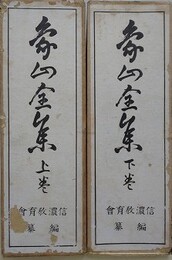 象山全集
上巻
信濃教育會
編纂
象山全集
下巻
信濃教育會
編纂